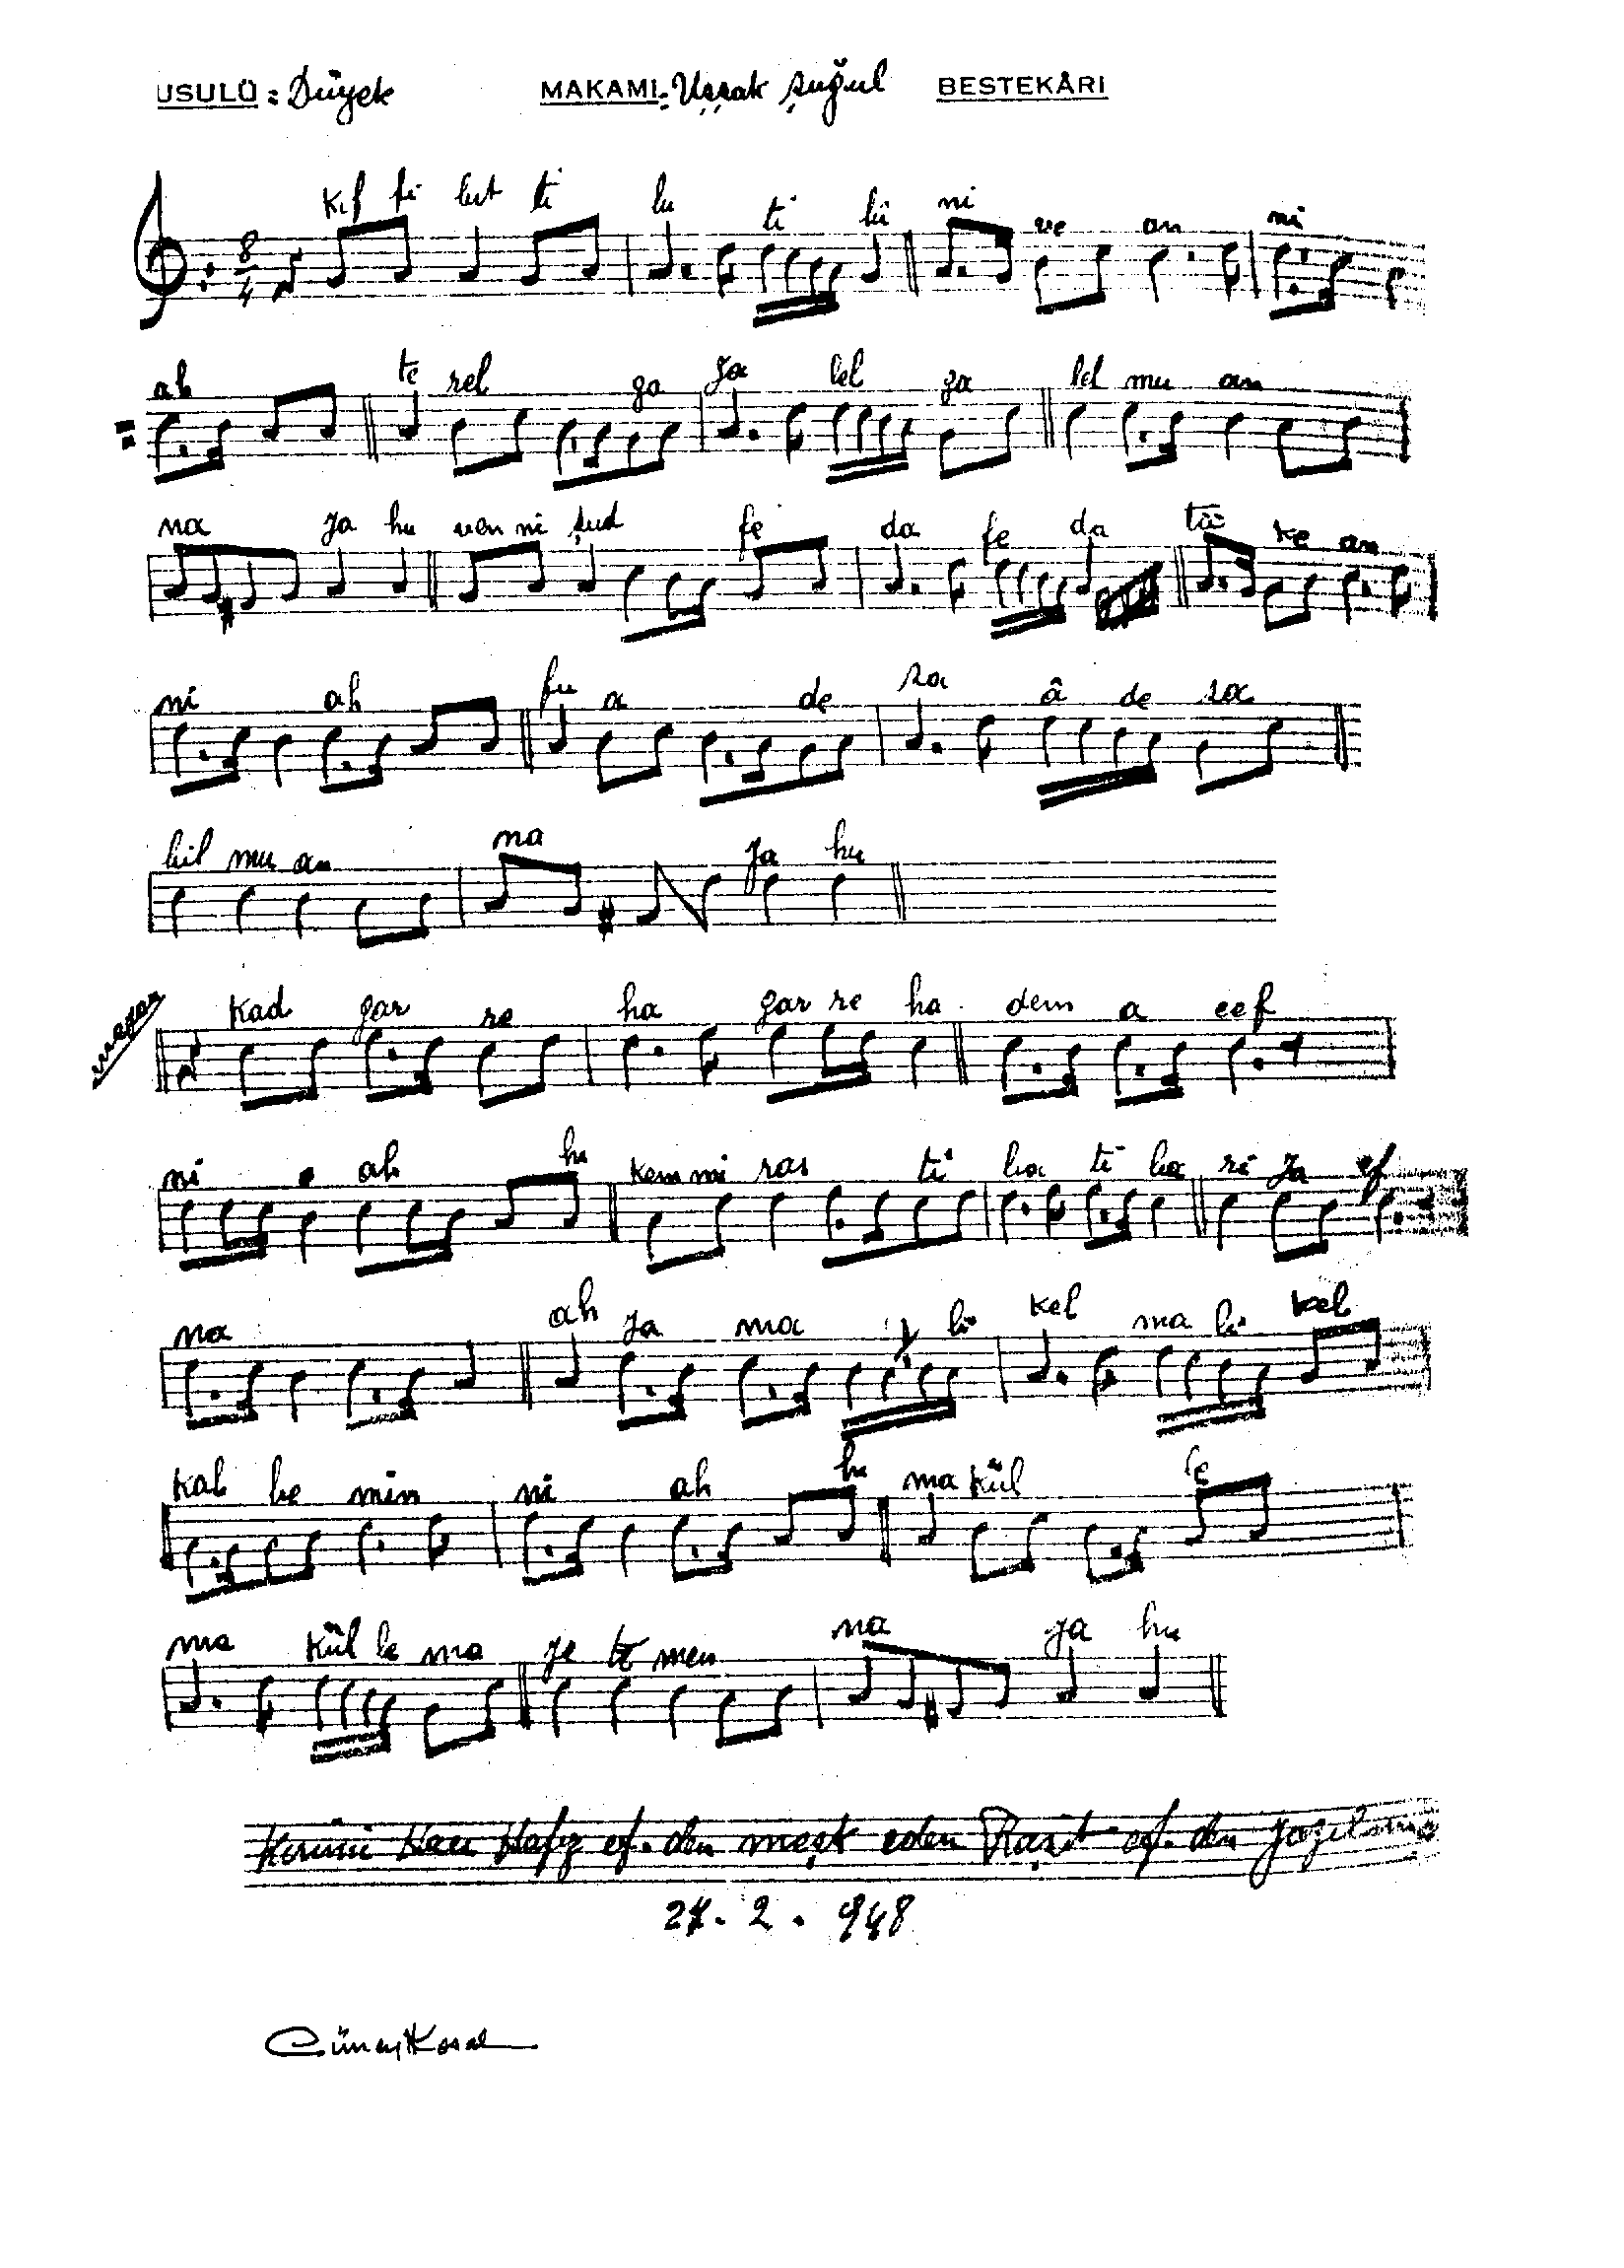 USULÜ : Düyek MAKAMI : Uşşak şuğul BESTEKÂRI
8/4
Kıf fi lut ti lu ti lü ni ve an ni
ah te rel ga ja lel ga lel mu an
na ja hu ven ni şud fe da fe da tâ ke an
ni ah fu a de ra â de ra
bil mu an na ja hu
Kad gar re ha gar re ha dem a eef
ni ah hu kem mi ras ti ha ti ha ri ja ef
na ah ja ma li kel ma li kel
Kal be min ni ah hu ma kül le
ma kül le ma je te men na ja hu
Hafız ef. den meşk eden Raşit ef. den
2. 948
Cüneyt Kosal